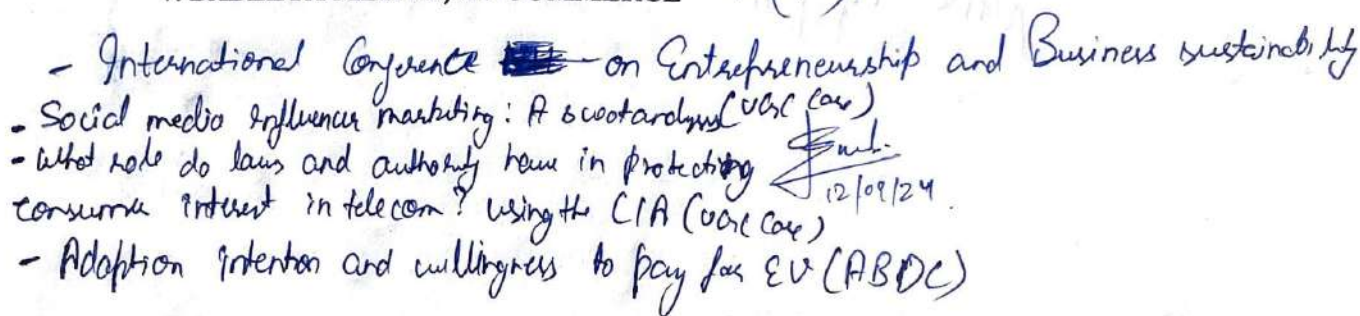 - International Conference on Entrepreneurship and Business sustainability
- Social media influencer marketing: A swot analysis (UGC Care)
- What role do laws and authority have in protecting
12/09/24
consumer interest in telecom? using the CIA (UGC Care)
- Adoption intention and willingness to pay for EV (ABDC)